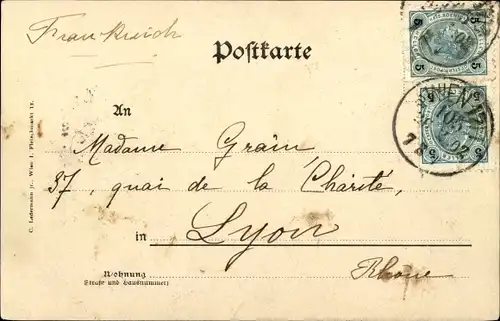 Frankreich
Postkarte
An
Madame Grain,
37, quai de la Charité,
in Lyon
Rhone
Wohnung
(Straße und Hausnummer)
C. Ledermann jr., Wien I. Fleischmarkt 12.
5 5
5 5
WIEN